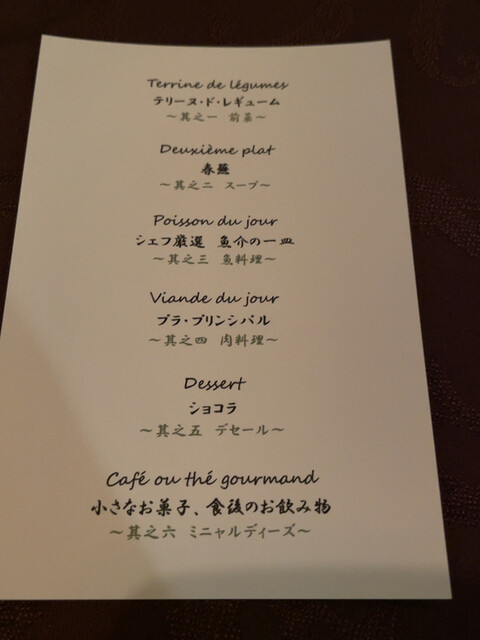 Terrine de légumes
テリーヌ・ド・レギューム
～其之一 前菜～
Deuxième plat
春蕪
～其之二 スープ～
Poisson du jour
シェフ厳選 魚介の一皿
～其之三 魚料理～
Viande du jour
プラ・プリンシパル
～其之四 肉料理～
Dessert
ショコラ
～其之五 デセール～
Café ou thé gourmand
小さなお菓子、食後のお飲み物
～其之六 ミニャルディーズ～